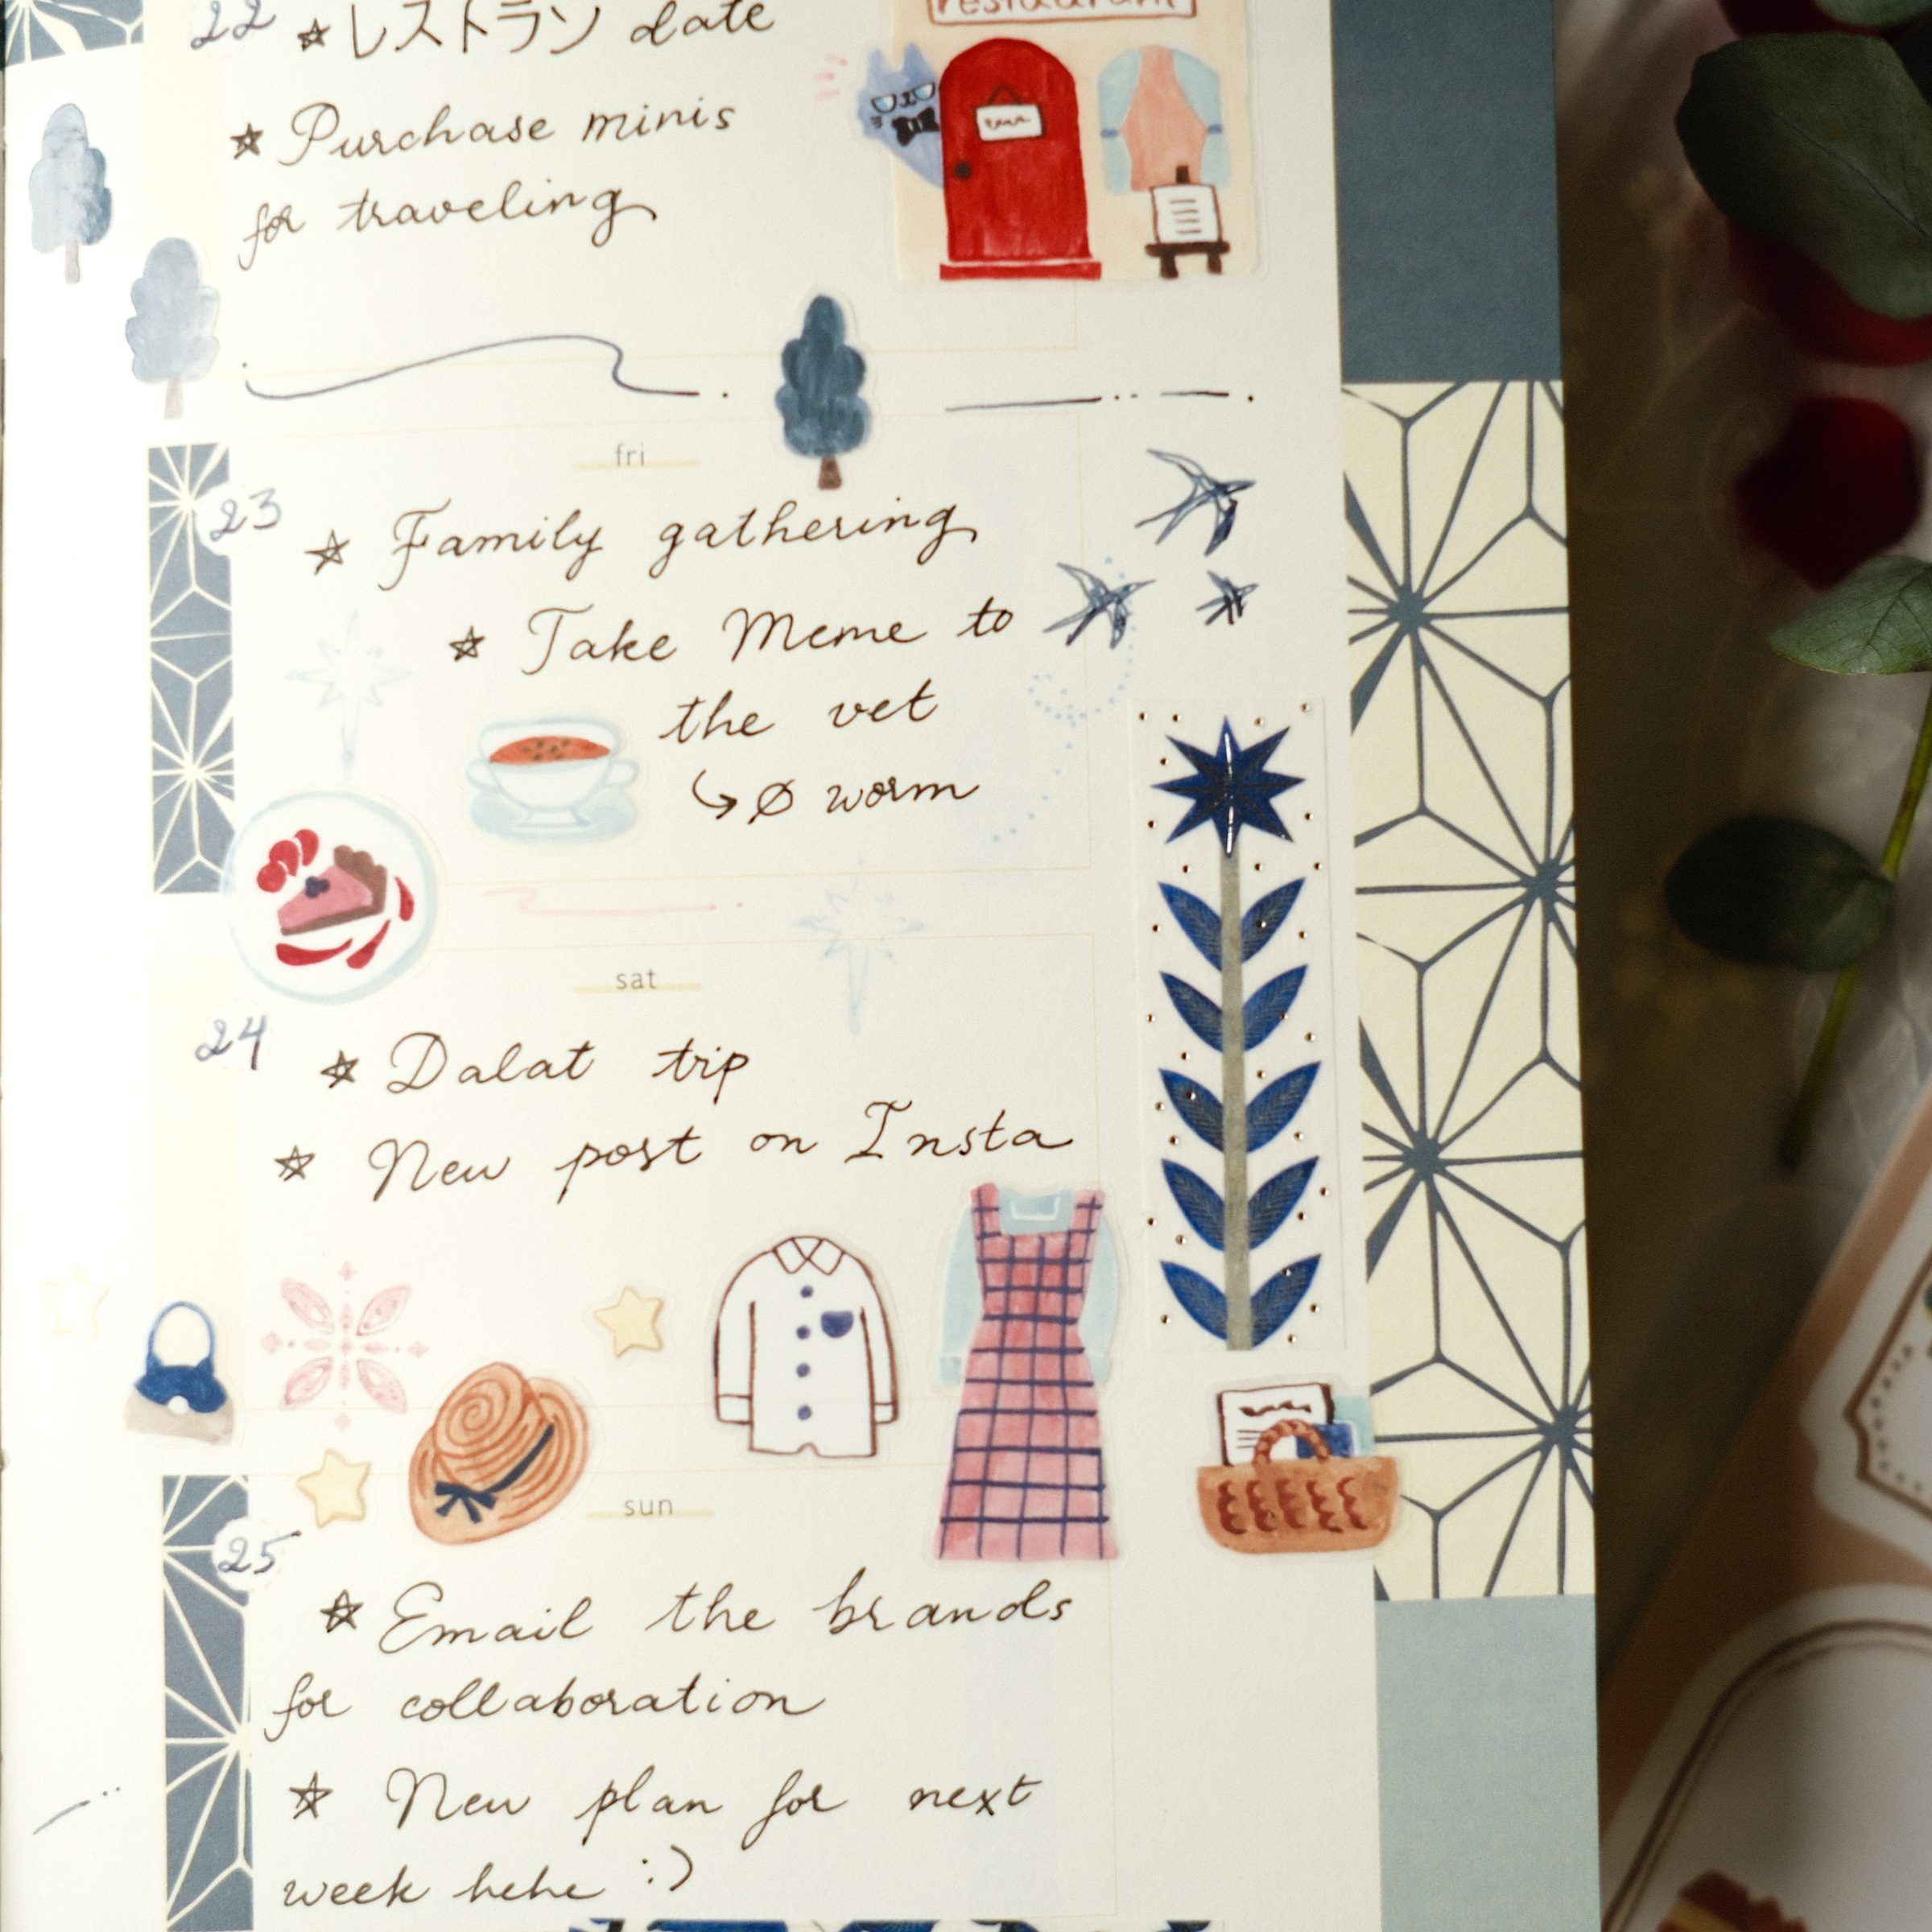 restaurant
22 ☆ レストラン date
☆ Purchase minis
for traveling
fri
23
☆ Family gathering
☆ Take Meme to
the vet
↳ Ø worm
sat
24
☆ Dalat trip
☆ New post on Insta
sun
25
☆ Email the brands
for collaboration
☆ New plan for next
week hehe :)